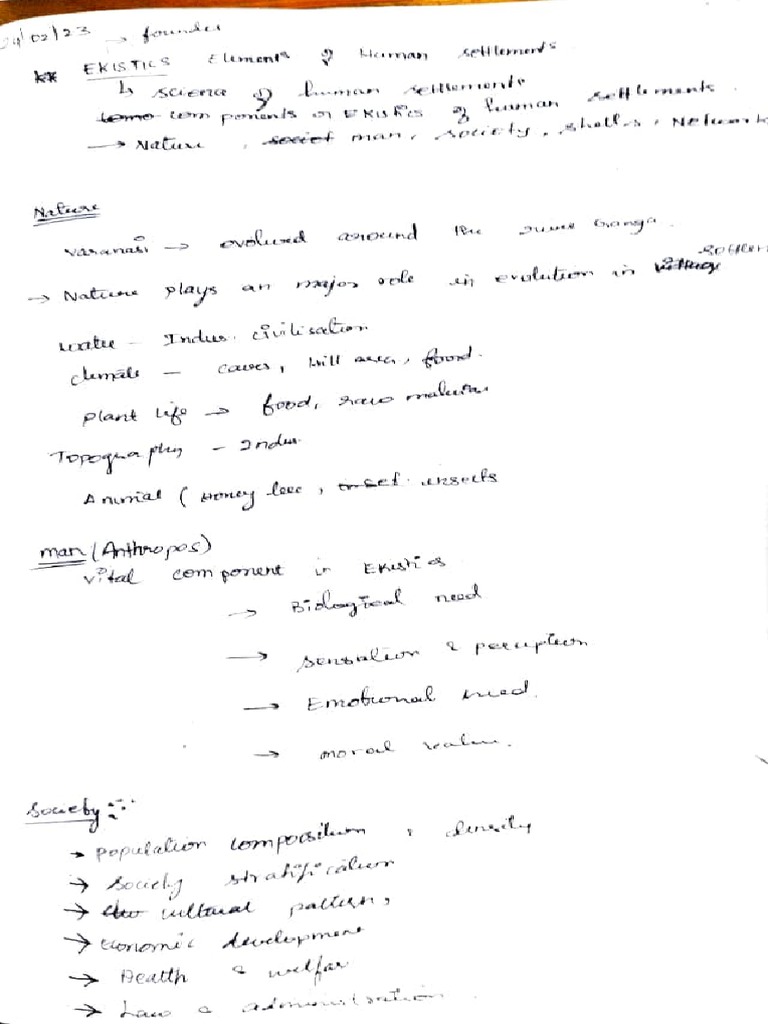 24/02/23 → founder
** EKISTICS Elements of Human settlements
↳ science of human settlements
components or EKistics of human settlements.
→ Nature, man, society, shells, Network
Nature
Varanasi → evolved around the river Ganga.
→ Nature plays an major role in evolution in settlem
water - Indus civilisation
climate - caves, hill area, food.
plant life → food, raw materias
Topography - Indus
Animal ( Honey bee, insects
man (Anthropos)
vital component in Ekistics
→ Biological need
→ sensation & perception
→ Emotional need.
→ moral value.
Society :-
→ population composition & density
→ Society stratification
→ cultural pattern,
→ Economic development
→ Health & welfar
→ Law & administration.